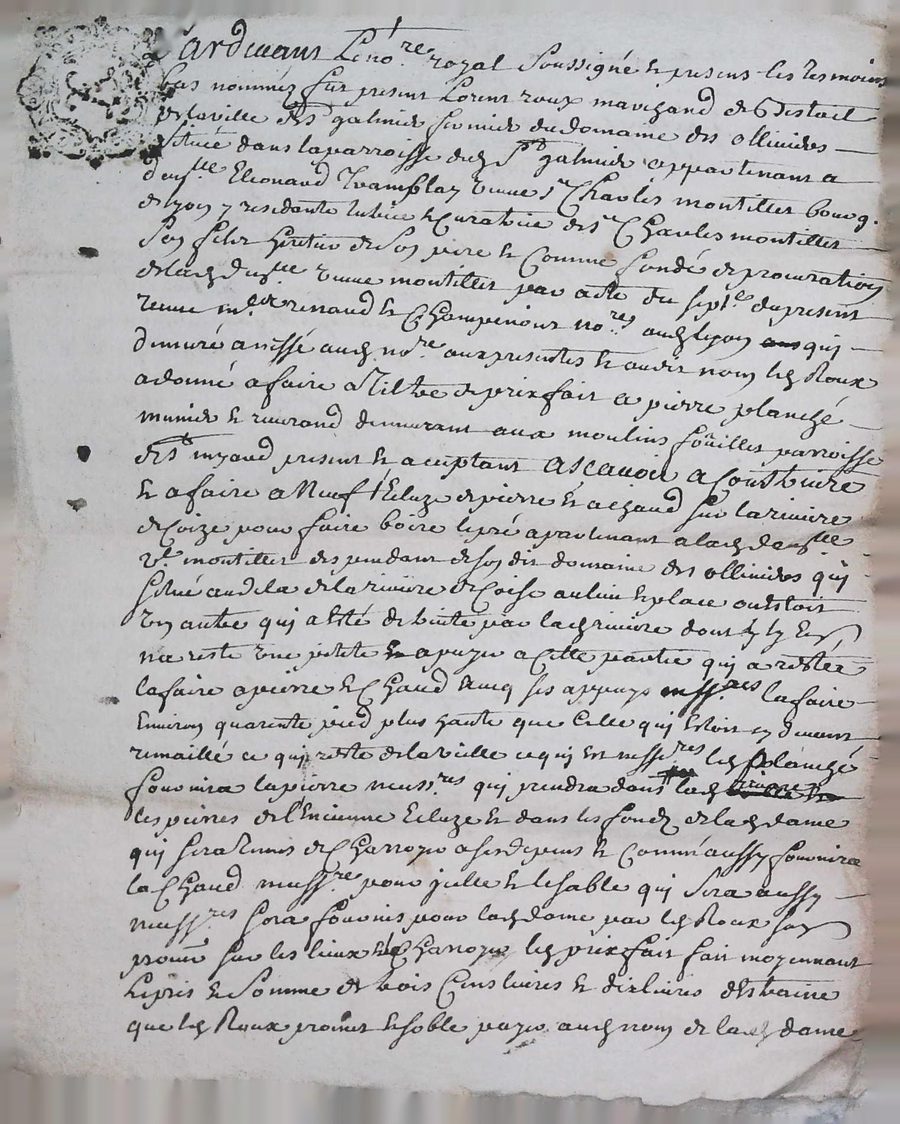 Pardevant Le no.re royal soussigné & presens les tesmoins
bas nommés fut present Lorent roux marchand de
de la ville de St galmier fermier du domaine des ollinieres
situé dans la parroisse dud St galmier appartenant a
dem.lle Eleonard Tramblay veuve sr Charles montillet bourg.
de lyon y residante tutrice & Curatrice de sr Charles montillet
son fils heritier de son pere & Comme fondé de procuration
de lad dem.lle veuve montillet par acte du sept.e du present
receue m.tre renaud & Champenour no.res aud lyon qui
demuré anessé aud no.re aux presentes & audit nom led Roux
a donné a faire a Tiltre de prix fait a pierre planché
munier & demeurant aux moulins parroisse
de St myaud present & aceptant ascavoir a Construire
& a faire a Neuf l'Ecluze de pierre & a chaud sur la riviere
de Coize pour faire boire le pré apartenant a lad dem.lle
v.e montillet despendant de son dit domaine des ollinieres qui
situé audela de la riviere de Coise au lieu & place ou estoit
un autre qui a esté par lad riviere dont il
ne reste une petite a cette partie qui a restée
la faire a pierre & Chaud avec ses appuys ness.res la faire
Environ quarente pied plus haute que Celle qui Estoit cy devant
remaillé ce qui reste de la vielle ce qui est ness.res led planché
fournira la pierre ness.res qui prendra dans
les pierres de l'Encienne Ecluze & dans les fondz de lad dame
qui sera tenus de Charroyer a ses depens & Comme aussy fournira
la Chaud ness.re pour icelle & le sable qui sera aussy
ness.res sera fournis pour lad dame par led Roux
sur les lieux & Charroyer led prix fait fait moyennant
le pris & Somme de trois Cens livres & dix livres destraine
que led Roux promet & soble payer aud nom de lad dame